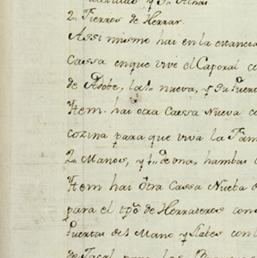 2 Fierros de Herrar.
Assi mismo hai en la estancia
Cassa en que vive el Caporal co
de Adobe, la nueva, y su Puert
Item. hai otra Cassa Nueva co
cozina para que viva la Fam
2 Manos, y de una hambas
Item hai Otra Cassa Nueba d
para el tpô de Herraderos con
Puertas de 1 Mano y Llabes con
de Jacal para